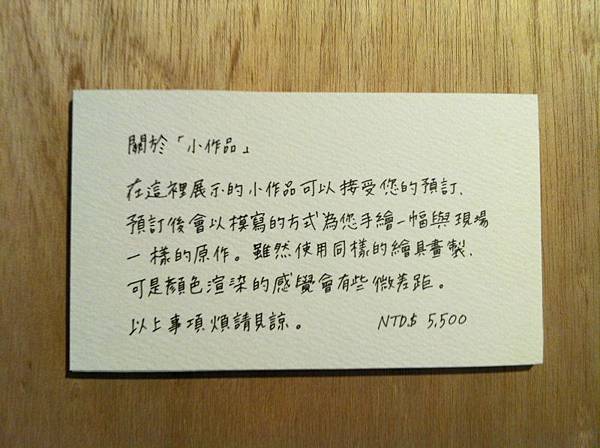 關於「小作品」
在這裡展示的小作品可以接受您的預訂、
預訂後會以模寫的方式為您手繪一幅與現場
一樣的原作。雖然使用同樣的繪具畫製、
可是顏色渲染的感覺會有些微差距。
以上事項煩請見諒。 NTD$ 5,500